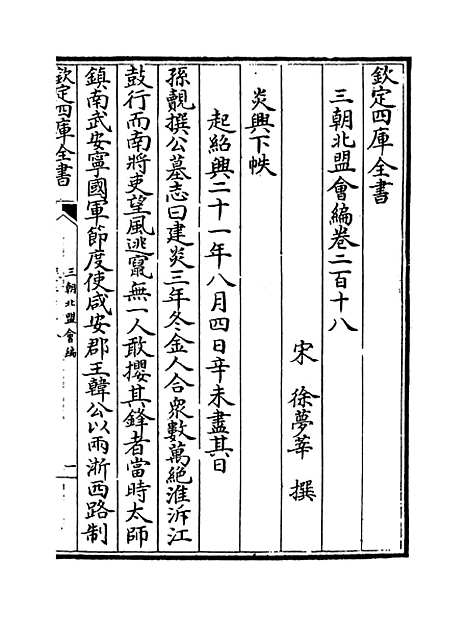 欽定四庫全書
三朝北盟會編卷二百十八
宋 徐夢莘 撰
炎興下帙
起紹興二十一年八月四日辛未盡其日
孫覿撰公墓志曰建炎三年冬金人合衆數萬絕淮泝江
鼓行而南將吏望風逃竄無一人敢攖其鋒者當時太師
鎮南武安寧國軍節度使咸安郡王韓公以兩浙西路制
欽定四庫全書
三朝北盟會編
一